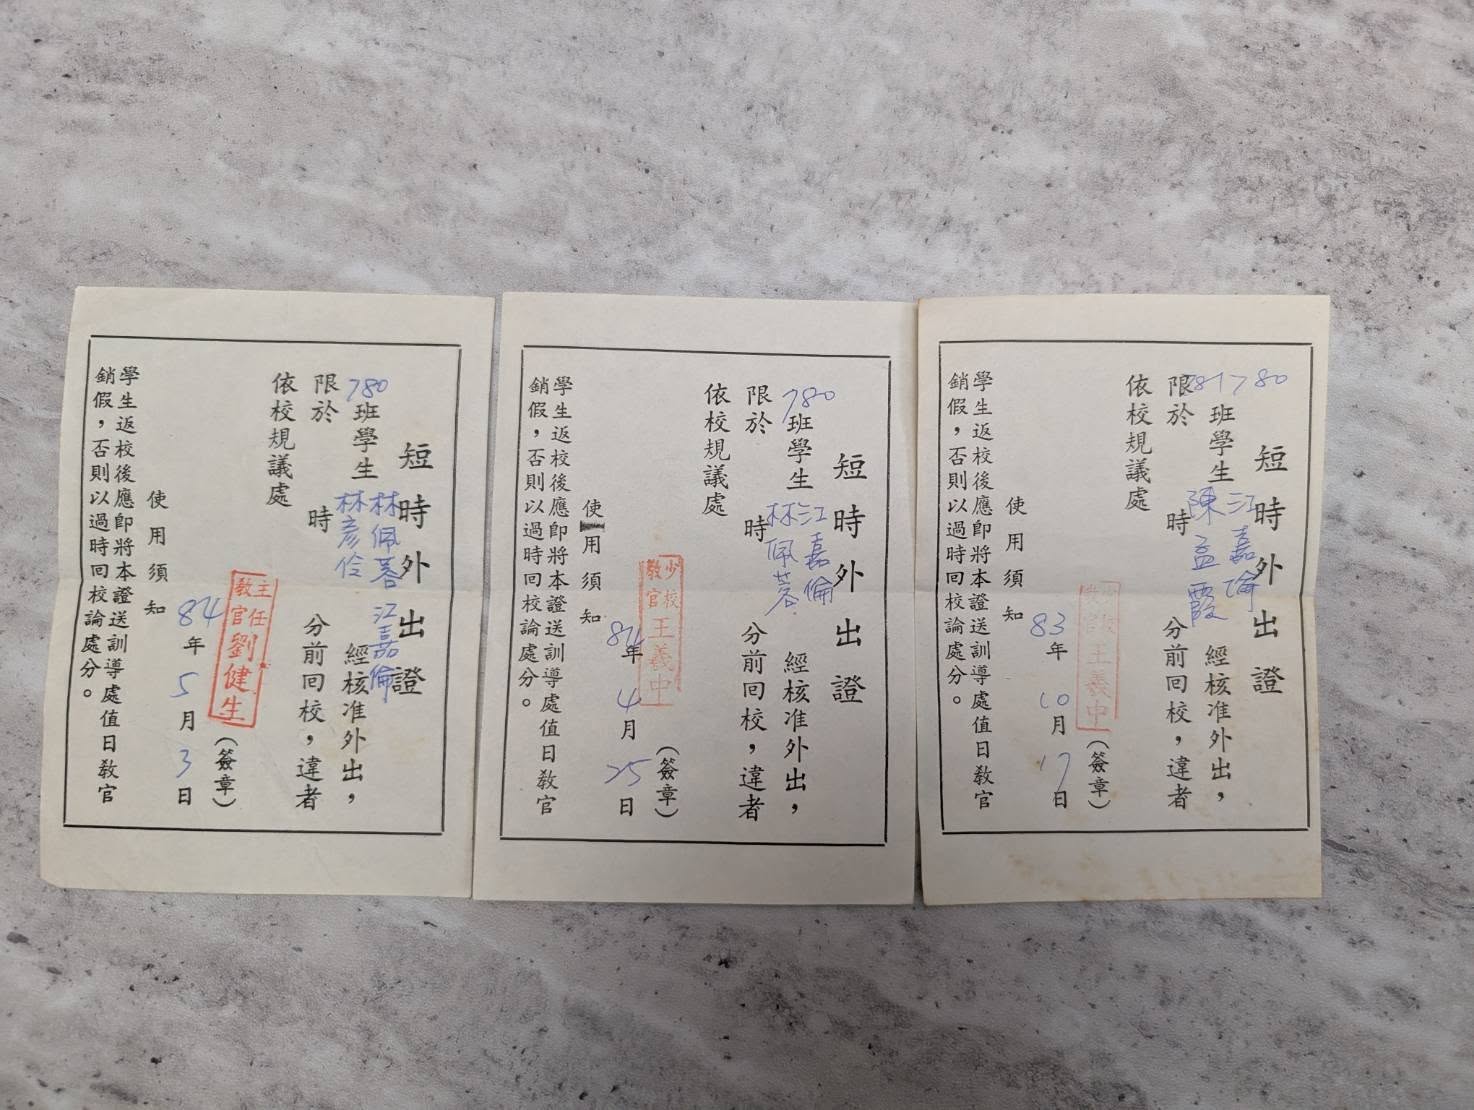 短時外出證
781 780班學生江嘉倫 陳孟霞 經核准外出，
限於 時 分前回校，違者
依校規議處
王義中
（簽章）
83年10月17日
使用須知
學生返校後應即將本證送訓導處值日教官
銷假，否則以過時回校論處分。
短時外出證
780班學生江嘉倫 林佩蓉 經核准外出，
限於 時 分前回校，違者
依校規議處
少校教官王義中
（簽章）
84年4月25日
使用須知
學生返校後應即將本證送訓導處值日教官
銷假，否則以過時回校論處分。
短時外出證
780班學生林佩蓉 江嘉倫 林彥伶 經核准外出，
限於 時 分前回校，違者
依校規議處
主任教官劉健生
（簽章）
84年5月3日
使用須知
學生返校後應即將本證送訓導處值日教官
銷假，否則以過時回校論處分。